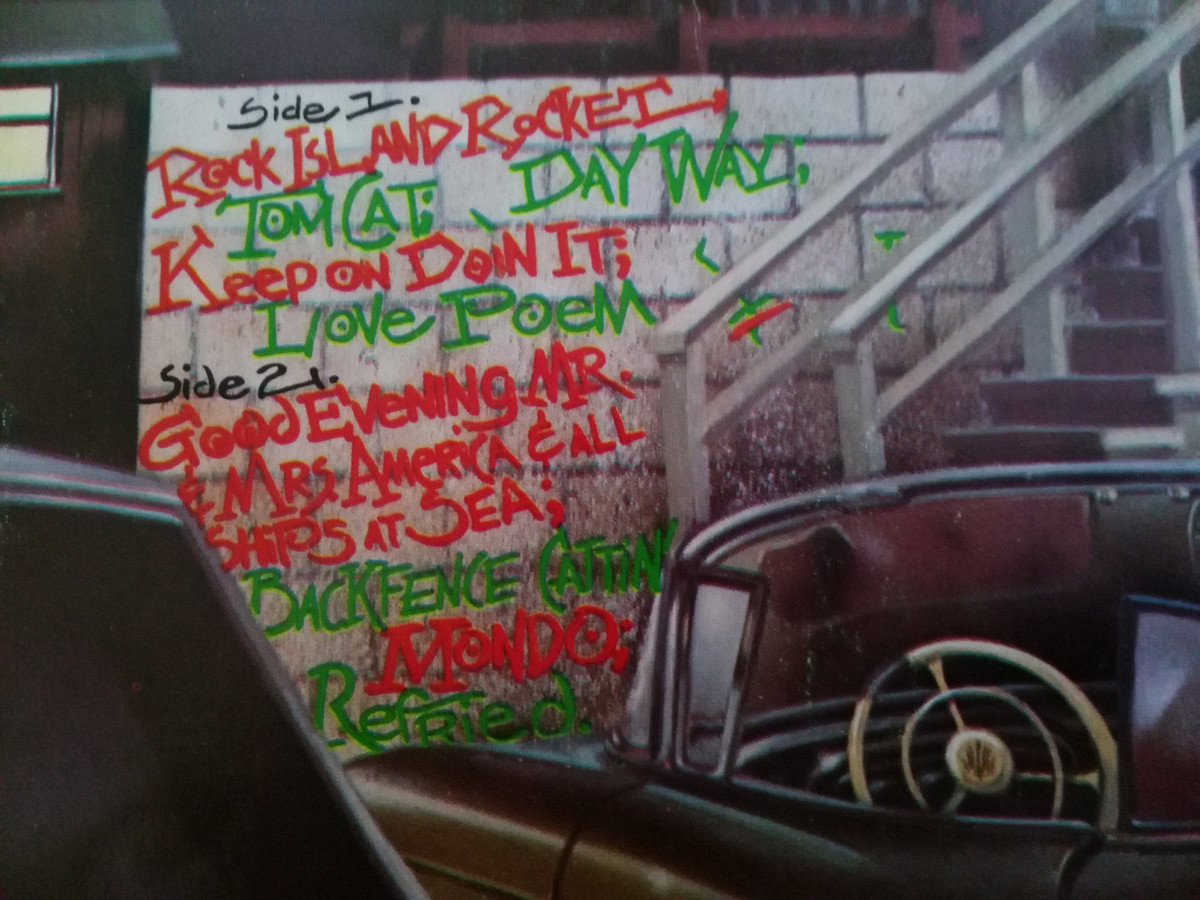 Side 1.
Rock Island Rocket
Tom Cat; Day Way;
Keep on Doin It;
Love Poem
Side 2.
Good Evening Mr.
& Mrs. America & All
Ships at Sea;
Backfence Cattin'
Mondo;
Refried.